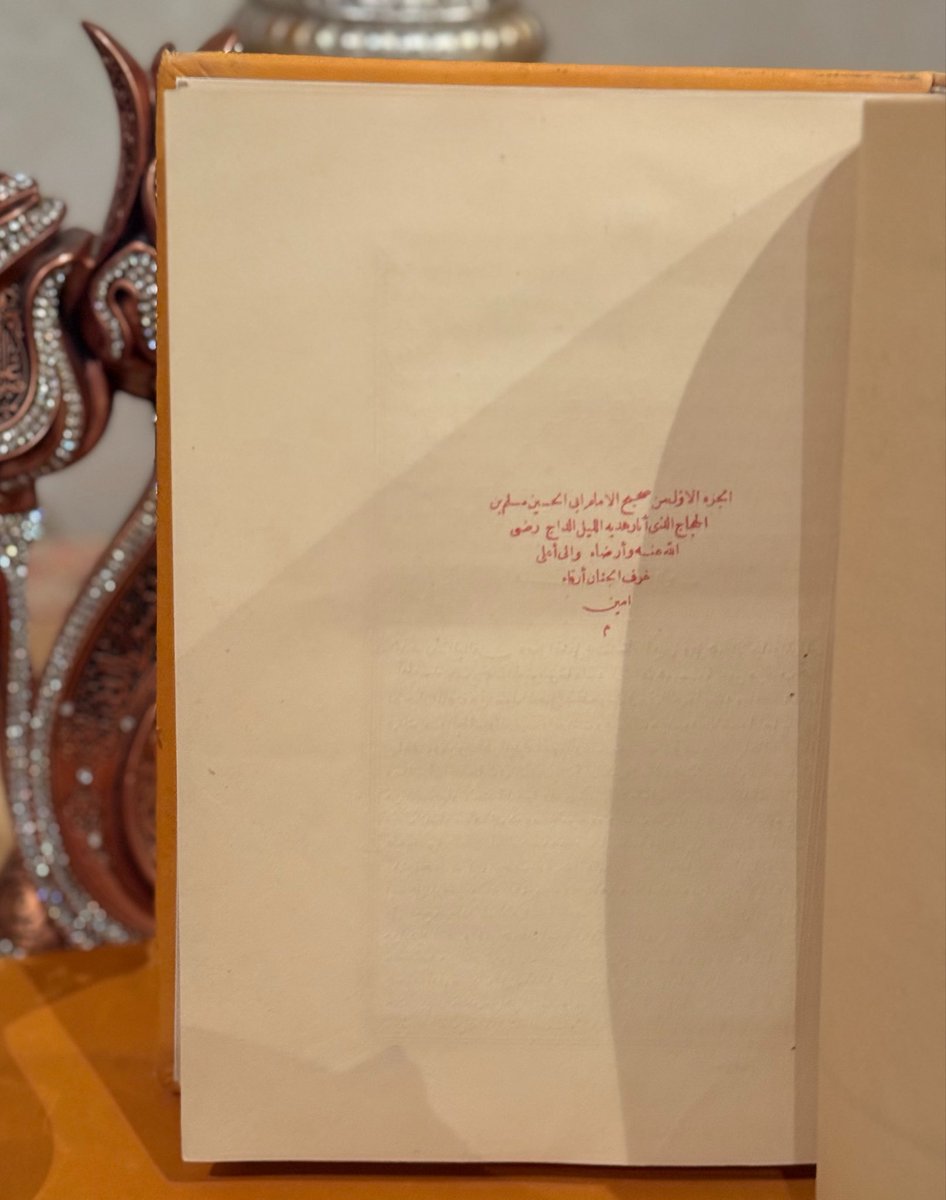 الجزء الاول من صحيح الامام ابى الحسين مسلم بن
الحجاج الذى أنار هديه الليل الداج رضى
الله عنه وأرضاه والى أعلى
غرف الجنان أرقاه
امين
م